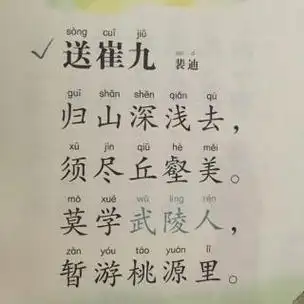 sòng cuī jiǔ
送崔九 裴迪
guī shān shēn qiǎn qù
归山深浅去，
xū jìn qiū hè měi
须尽丘壑美。
mò xué wǔ líng rén
莫学武陵人，
zàn yóu táo yuán lǐ
暂游桃源里。